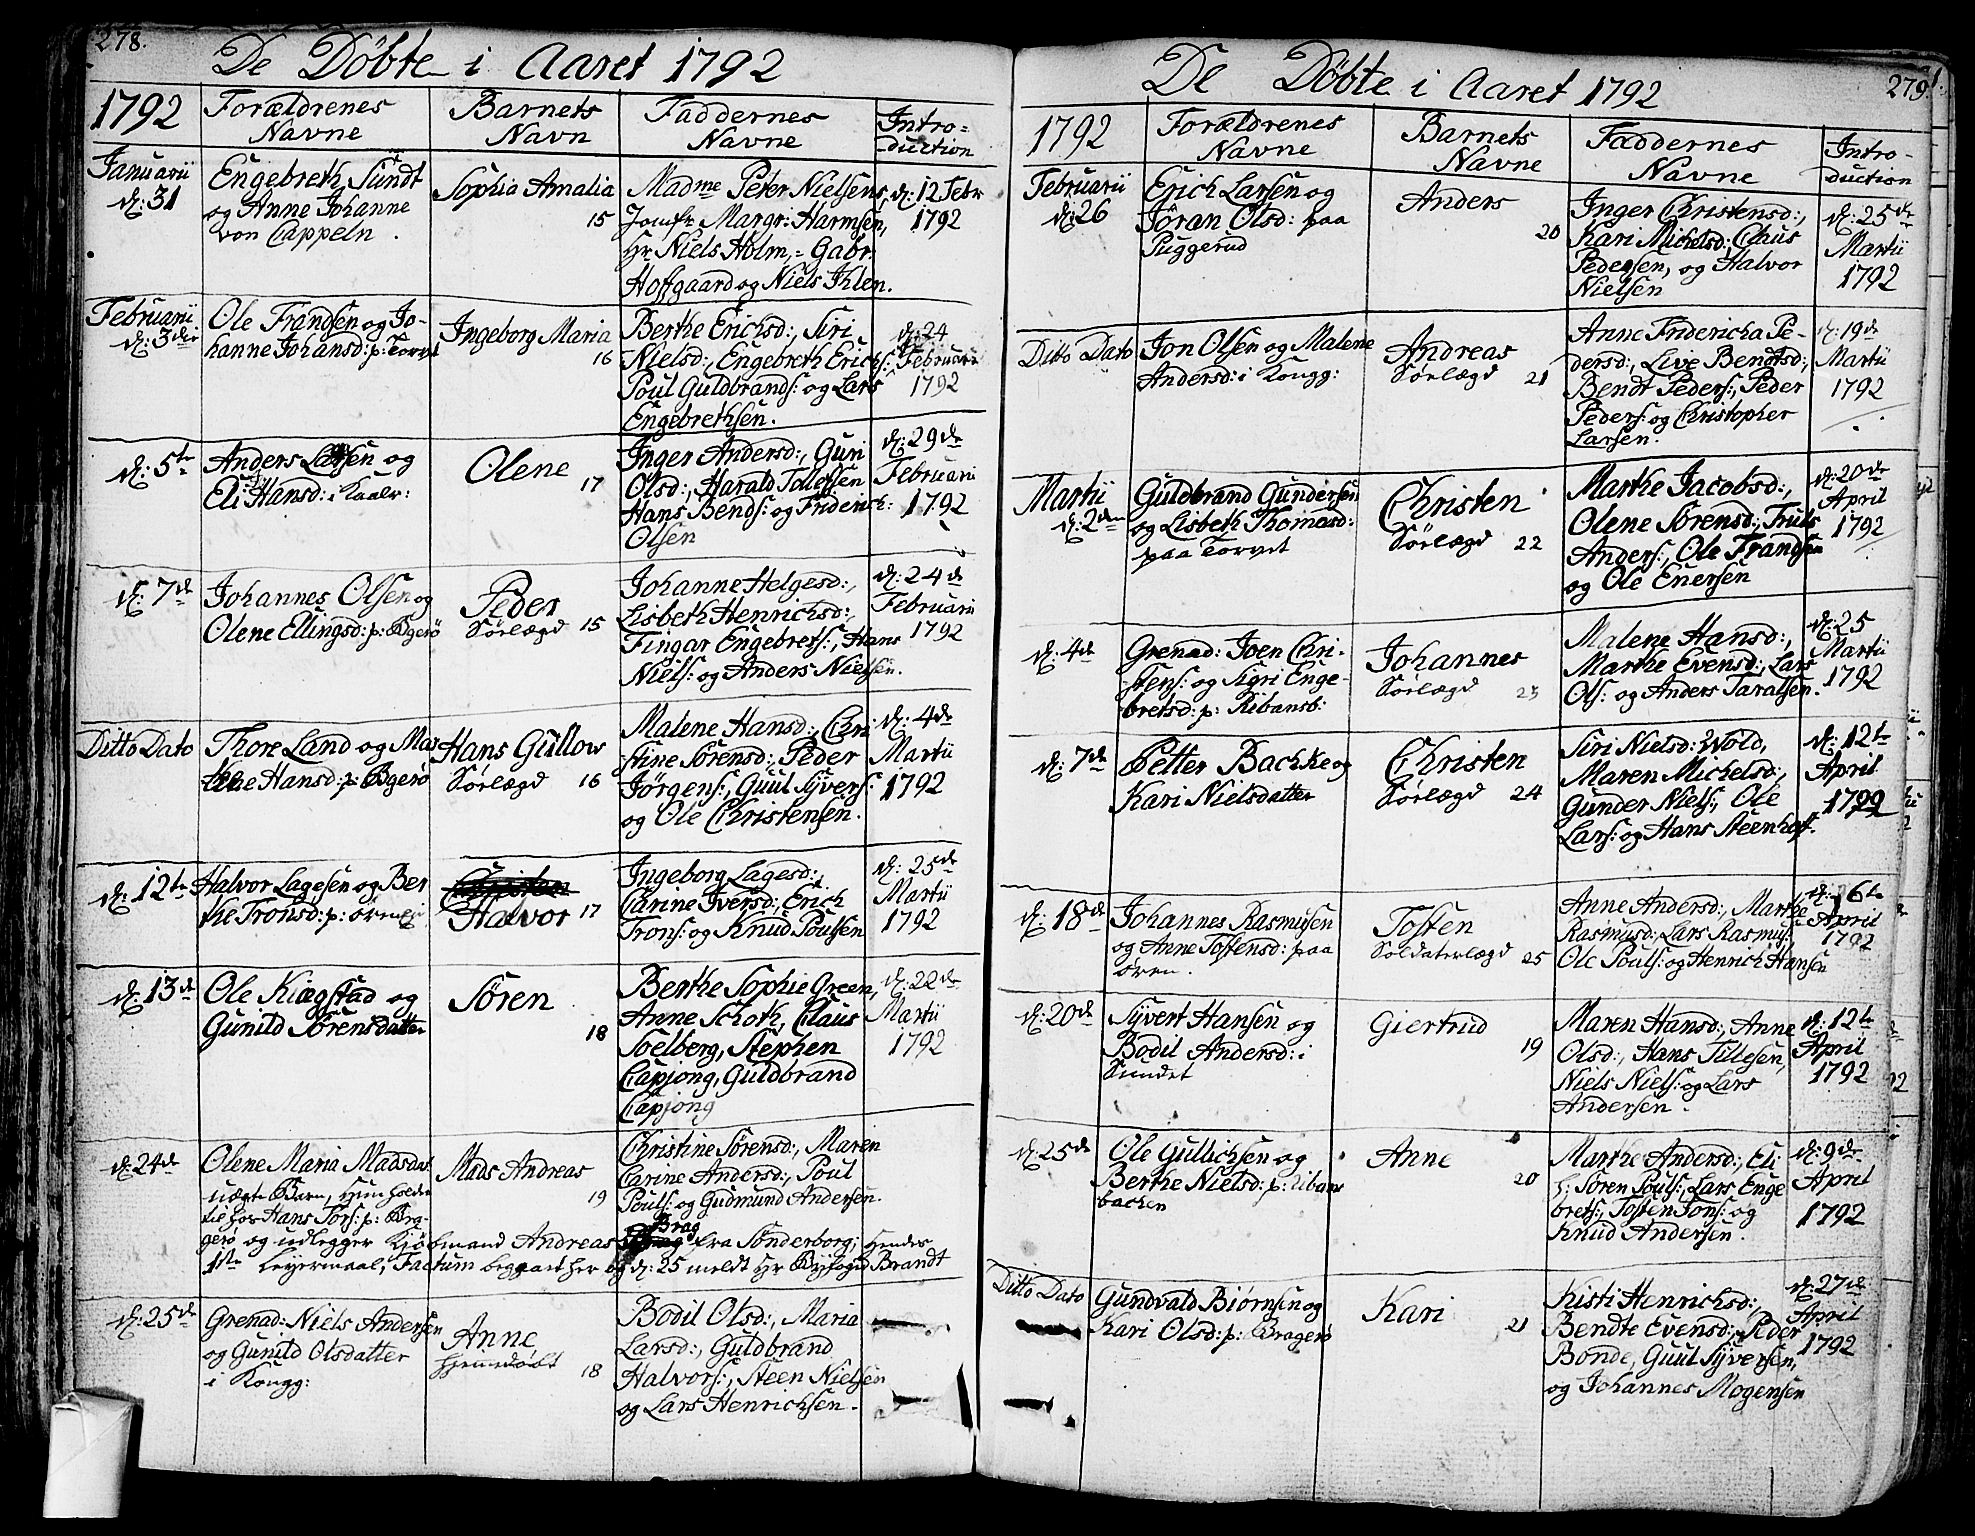 278.
De Döbte i Aaret 1792
1792
Forældrenes
Navne
Barnets
Navn
Faddernes
Navne
Intro-
duction
Januarii
d: 31
Engebreth Sundt
og Anne Johanne
von Cappeln.
Sophia Amalia
15
Madme Peter Nielsens,
Jomfr Margr: Harmsen,
Hr Niels Holm,= Gabr.
Hoffgaard og Niels Ihlen.
d: 12 Febr
1792
Februarii
d: 3die
Ole Frandsen og Jo-
hanne Johansd: p: Torvet
Ingeborg Maria
16
Berthe Erichsd:, Siri
Nielsd:, Engebreth Erichs:
Poul Guldbrands: og Lars
Engebrethsen.
d: 24
Februarii
1792
d: 5te
Anders Larsen og
Eli Hansd: i Kaalr:
Olene
17
Inger Andersd:, Guri
Olsd:, Harald Tollefsen
Hans Bends: og Friderich:
Olsen
d: 29de
Februari
1792
d: 7de
Johannes Olsen og
Olene Ellingsd: p: Bgerö
Peder
Sörlægd 15
Johanne Helgesd:,
Lisbeth Henrichsd:,
Fingar Engebrets:, Hans
Niels: og Anders Nielsen.
d: 24de
Februarii
1792
Ditto Dato
Thore Land og Mar
the Hansd: p: Bgerö
Hans Gullow
Sörlægd 16
Malene Hansd:, Chri
stine Sörensd:, Peder
Jörgens:, Guul Syvers:
og Ole Christensen.
d: 4de
Martii
1792
d: 12te
Halvor Lagesen og Ber
the Tronsd: p: örenei
Christen
Halvor 17
Ingeborg Lagesd:,
Carine Iversd:, Erich
Trons: og Knud Poulsen
d: 25de
Martii
1792
d: 13de
Ole Kiægstad og
Gunild Sörensdatter
Sören
18
Berthe Sophie Green,
Anne Schoth, Claus
Soelberg, Stephen
Capjong, Guldbrand
Capjong
d: 22de
Martii
1792
d: 24de
Olene Maria Madsdat
uægte Barn, hun holder
til hos Hans Tors: p: Brg-
gerö og udlegger Kjöbmand Andreas Brag fra Sönderborg; hendes
1ste Leyermaal, Factum begaaet her og d: 25 meldt Hr Byfoged Brandt
Mads Andreas
19
Christine Sörensd:, Maren
Carine Andersd:, Poul
Pouls: og Gudmund Andersen.
d: 25de
Grenad: Niels Andersen
og Gunild Olsdatter
i Kongg:
Anne
hjemdöbt 18
Bodil Olsd:, Maria
Larsd:, Guldbrand
Halvors:, Steen Nielsen
og Lars Henrichsen.
279.
De Döbte i Aaret 1792
1792
Forældrenes
Navne
Barnets
Navne
Faddernes
Navne
Intro-
duction
Februarii
d: 26
Erich Larsen og
Jöran Olsd: paa
Puggerud
Anders
20
Inger Christensd:,
Kari Michelsd:, Claus
Pedersen, og Halvor
Nielsen
d: 25de
Martii
1792
Ditto Dato
Jon Olsen og Malene
Andersd: i Kongg:
Andreas
Sörlægd 21
Anne Fridericha Pe-
dersd:, Live Bendtsd:,
Bendt Peders:, Peder
Peders: og Christopher
Larsen.
d: 19de
Martii
1792
Martii
d: 2den
Guldbrand Gundersen
og Lisbeth Thomasd:
paa Torvet
Christen
Sörlægd 22
Marthe Jacobsd:,
Olene Sörensd:, Truls
Anders:, Ole Frandsen
og Ole Enersen
d: 20de
April
1792
d: 4de
Grenad: Joen Chri-
stens: og Sigri Enge-
bretsd: p: Ribansb:
Johannes
Sörlægd 23
Malene Hansd:,
Marthe Evensd:, Lars
Ols: og Anders Taralsen.
d: 25
Martii
1792
d: 7de
Petter Bachke og
Kari Nielsdatter
Christen
Sörlægd 24
Siri Nielsd: Wold,
Maren Michelsd:,
Gunder Niels:, Ole
Lars: og Hans Steenhoff.
d: 12te
April
1792
d: 18de
Johannes Rasmusen
og Anne Tostensd: paa
ören.
Tosten
Soldaterlægd 25
Anne Andersd:, Marthe
Rasmusd:, Lars Rasmus:
Ole Pouls: og Henrich Hansen
d: 6te
April
1792
d: 20de
Syvert Hansen og
Bodil Andersd: i
Sundet
Giertrud
19
Maren Hansd:, Anne
Olsd:, Hans Tillesen,
Niels Niels: og Lars
Andersen.
d: 12te
April
1792
d: 25de
Ole Gullichsen og
Berthe Nielsd: p: Ribans
bachen
Anne
20
Marthe Andersd:, Eli
S: Sören Pouls:, Lars Enge
brets:, Tosten Jons: og
Knud Andersen.
d: 9de
April
1792
Ditto Dato
Gundvald Biörnsen og
Kari Olsd: p: Bragerö
Kari
21
Kisti Henrichsd:,
Bendte Evensd:, Peder
Bonde, Guul Syversen,
og Johannes Mogensen
d: 27de
April
1792